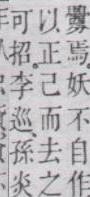 釁焉、妖不自作
以正己而去之
可招、李巡、孫炎